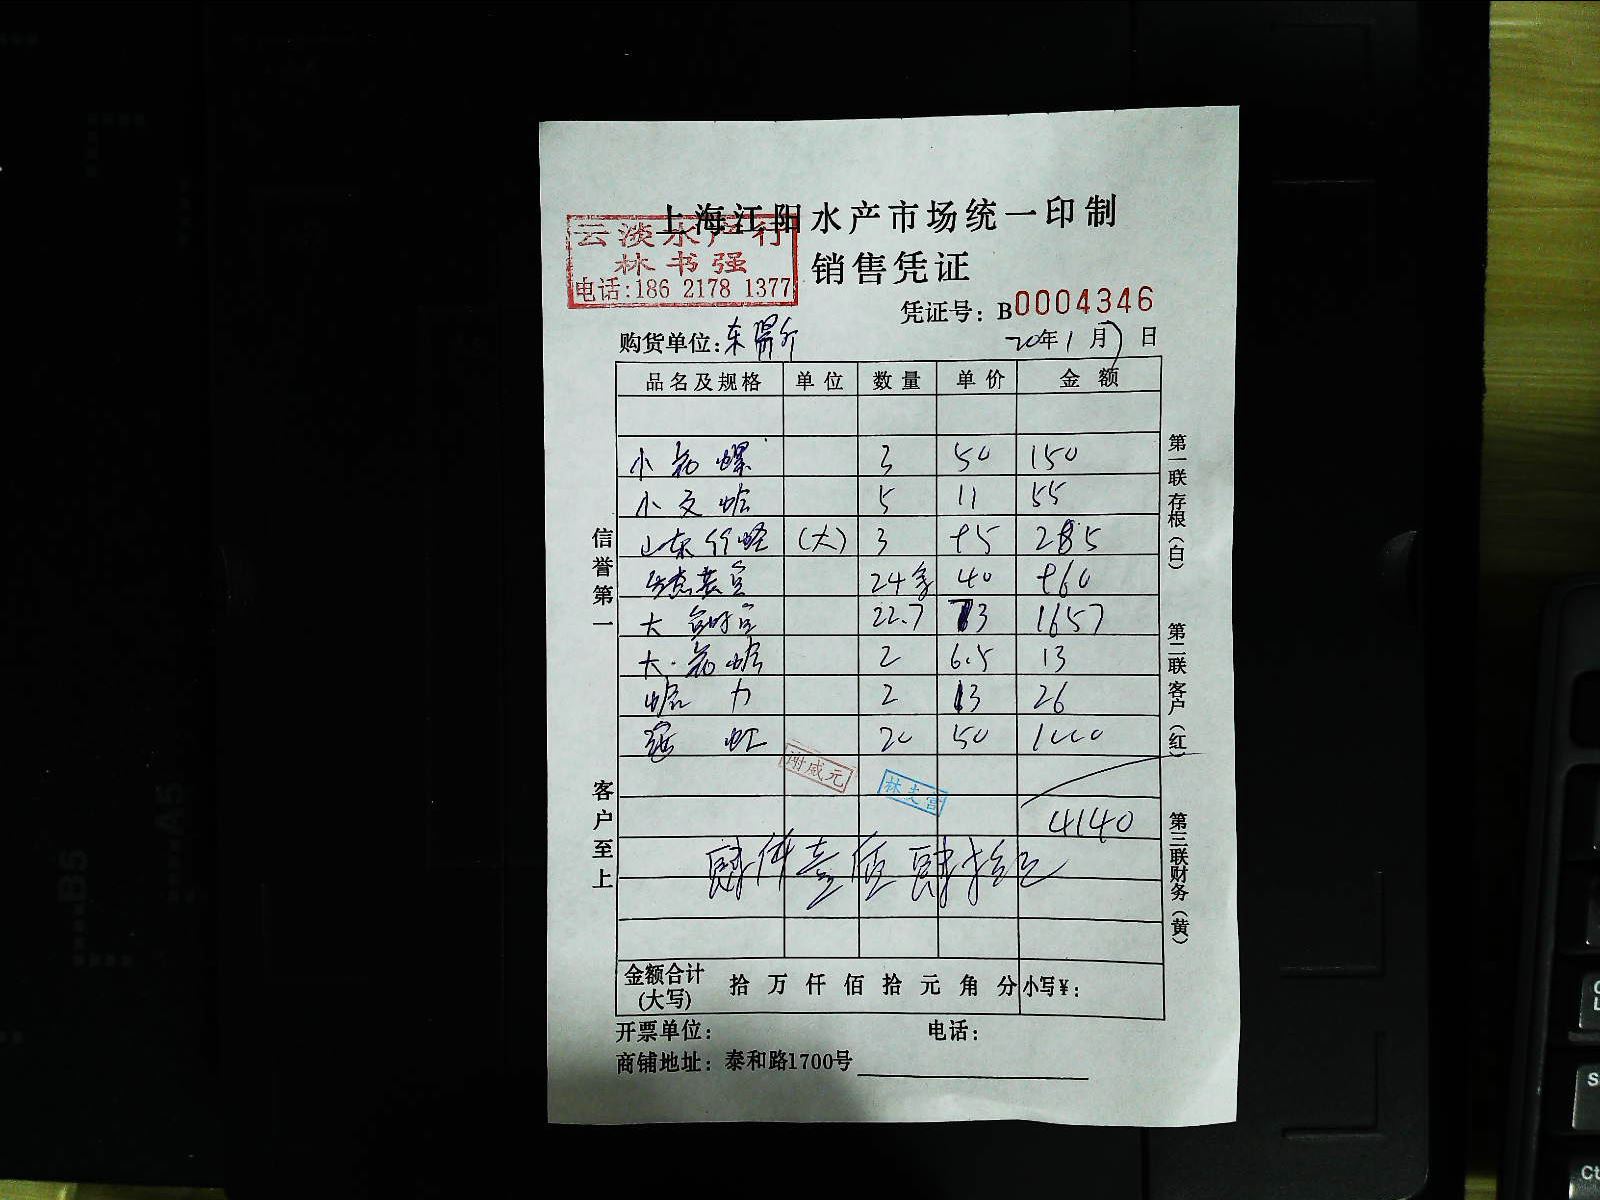 上海江阳水产市场统一印制
云淡水产行
林书强
电话:186 2178 1377
销售凭证
凭证号: B0004346
购货单位:东
20年1月7日
品名及规格 单位 数量 单价 金额
小花螺 3 50 150
小文蛤 5 11 55
山东竹蛏 (大) 3 95 285
24 40 960
大 22.7 73 1657
大.花蛤 2 6.5 13
蛤力 2 13 26
虹 20 50 1000
林文富
4140
肆仟壹佰肆拾元
金额合计(大写) 拾 万 仟 佰 拾 元 角 分 小写¥:
开票单位: 电话:
商铺地址: 泰和路1700号
信誉第一
客户至上
第一联存根(白)
第二联客户(红)
第三联财务(黄)
B5
A5